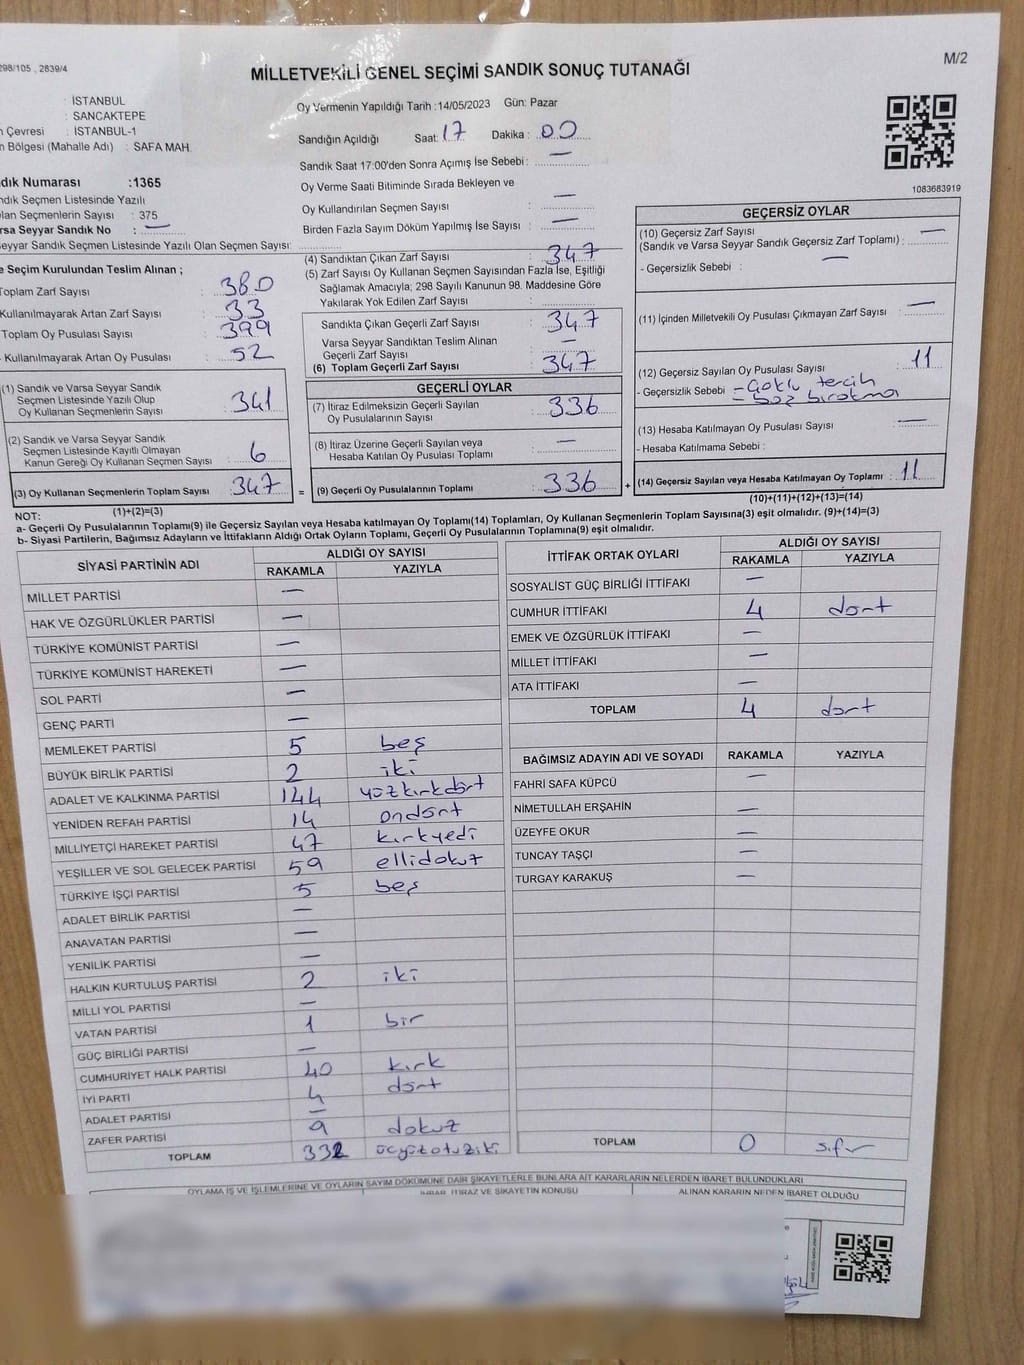 298/105 , 2839/4
M/2
MİLLETVEKİLİ GENEL SEÇİMİ SANDIK SONUÇ TUTANAĞI
: İSTANBUL
: SANCAKTEPE
n Çevresi : İSTANBUL-1
n Bölgesi (Mahalle Adı) : SAFA MAH.
dık Numarası :1365
ndık Seçmen Listesinde Yazılı
olan Seçmenlerin Sayısı : 375
arsa Seyyar Sandık No : —
Seyyar Sandık Seçmen Listesinde Yazılı Olan Seçmen Sayısı:
Oy Vermenin Yapıldığı Tarih :14/05/2023 Gün: Pazar
Sandığın Açıldığı Saat: 17 Dakika : 00
Sandık Saat 17:00'den Sonra Açımış İse Sebebi : —
Oy Verme Saati Bitiminde Sırada Bekleyen ve
Oy Kullandırılan Seçmen Sayısı : —
Birden Fazla Sayım Döküm Yapılmış İse Sayısı : —
1083683919
e Seçim Kurulundan Teslim Alınan ;
Toplam Zarf Sayısı : 380
Kullanılmayarak Artan Zarf Sayısı : 33
Toplam Oy Pusulası Sayısı : 399
Kullanılmayarak Artan Oy Pusulası : 52
(1) Sandık ve Varsa Seyyar Sandık
Seçmen Listesinde Yazılı Olup
Oy Kullanan Seçmenlerin Sayısı : 341
(2) Sandık ve Varsa Seyyar Sandık
Seçmen Listesinde Kayıtlı Olmayan
Kanun Gereği Oy Kullanan Seçmen Sayısı : 6
(3) Oy Kullanan Seçmenlerin Toplam Sayısı : 347
(1)+(2)=(3)
(4) Sandıktan Çıkan Zarf Sayısı : 347
(5) Zarf Sayısı Oy Kullanan Seçmen Sayısından Fazla İse, Eşitliği
Sağlamak Amacıyla; 298 Sayılı Kanunun 98. Maddesine Göre
Yakılarak Yok Edilen Zarf Sayısı :
Sandıkta Çıkan Geçerli Zarf Sayısı : 347
Varsa Seyyar Sandıktan Teslim Alınan
Geçerli Zarf Sayısı : —
(6) Toplam Geçerli Zarf Sayısı : 347
GEÇERLİ OYLAR
(7) İtiraz Edilmeksizin Geçerli Sayılan
Oy Pusulalarının Toplamı : 336
(8) İtiraz Üzerine Geçerli Sayılan veya
Hesaba Katılan Oy Pusulası Toplamı : —
= (9) Geçerli Oy Pusulalarının Toplamı : 336
GEÇERSİZ OYLAR
(10) Geçersiz Zarf Sayısı
(Sandık ve Varsa Seyyar Sandık Geçersiz Zarf Toplamı) : —
- Geçersizlik Sebebi : —
(11) İçinden Milletvekili Oy Pusulası Çıkmayan Zarf Sayısı : —
(12) Geçersiz Sayılan Oy Pusulası Sayısı : 11
- Geçersizlik Sebebi - Çoklu tercih
- boş bırakma
(13) Hesaba Katılmayan Oy Pusulası Sayısı : —
- Hesaba Katılmama Sebebi :
+ (14) Geçersiz Sayılan veya Hesaba Katılmayan Oy Toplamı : 11
(10)+(11)+(12)+(13)=(14)
NOT:
a- Geçerli Oy Pusulalarının Toplamı(9) ile Geçersiz Sayılan veya Hesaba katılmayan Oy Toplamı(14) Toplamları, Oy Kullanan Seçmenlerin Toplam Sayısına(3) eşit olmalıdır. (9)+(14)=(3)
b- Siyasi Partilerin, Bağımsız Adayların ve İttifakların Aldığı Ortak Oyların Toplamı, Geçerli Oy Pusulalarının Toplamına(9) eşit olmalıdır.
SİYASİ PARTİNİN ADI ALDIĞI OY SAYISI
RAKAMLA YAZIYLA
MİLLET PARTİSİ —
HAK VE ÖZGÜRLÜKLER PARTİSİ —
TÜRKİYE KOMÜNİST PARTİSİ —
TÜRKİYE KOMÜNİST HAREKETİ —
SOL PARTİ —
GENÇ PARTİ —
MEMLEKET PARTİSİ 5 beş
BÜYÜK BİRLİK PARTİSİ 2 iki
ADALET VE KALKINMA PARTİSİ 144 yüzkırkdört
YENİDEN REFAH PARTİSİ 14 ondört
MİLLİYETÇİ HAREKET PARTİSİ 47 kırkyedi
YEŞİLLER VE SOL GELECEK PARTİSİ 59 ellidokuz
TÜRKİYE İŞÇİ PARTİSİ 5 beş
ADALET BİRLİK PARTİSİ —
ANAVATAN PARTİSİ —
YENİLİK PARTİSİ —
HALKIN KURTULUŞ PARTİSİ 2 iki
MİLLİ YOL PARTİSİ —
VATAN PARTİSİ 1 bir
GÜÇ BİRLİĞİ PARTİSİ —
CUMHURİYET HALK PARTİSİ 40 kırk
İYİ PARTİ 4 dört
ADALET PARTİSİ —
ZAFER PARTİSİ 9 dokuz
TOPLAM 332 üçyüzotuziki
İTTİFAK ORTAK OYLARI ALDIĞI OY SAYISI
RAKAMLA YAZIYLA
SOSYALİST GÜÇ BİRLİĞİ İTTİFAKI —
CUMHUR İTTİFAKI 4 dört
EMEK VE ÖZGÜRLÜK İTTİFAKI —
MİLLET İTTİFAKI —
ATA İTTİFAKI —
TOPLAM 4 dört
BAĞIMSIZ ADAYIN ADI VE SOYADI RAKAMLA YAZIYLA
FAHRİ SAFA KÜPCÜ —
NİMETULLAH ERŞAHİN —
ÜZEYFE OKUR —
TUNCAY TAŞÇI —
TURGAY KARAKUŞ —
TOPLAM 0 sıfır
OYLAMA İŞ VE İŞLEMLERİNE VE OYLARIN SAYIM DÖKÜMÜNE DAİR ŞİKAYETLERLE BUNLARA AİT KARARLARIN NELERDEN İBARET BULUNDUKLARI
İHBAR, İTİRAZ VE ŞİKAYETİN KONUSU ALINAN KARARIN NEDEN İBARET OLDUĞU